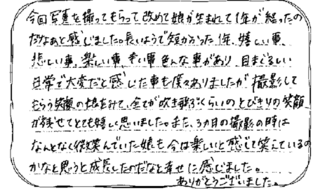 今回写真を撮ってもらって改めて娘が生まれて1年が経ったの
だなあと感じました。長いようで短かかった1年、嬉しい事、
悲しい事、楽しい事、辛い事色んな事があり、目まぐるしい
日常で大変だと感じた事も度々ありましたが撮影して
もらう笑顔の娘を見て、全てが吹き飛ぶくらいのとびきりの笑顔
が残せてとても嬉しく思いました。また、3ヵ月の撮影の時に
なんとなく微笑んでいた娘も今は楽しいと感じて笑えているの
かなと思うと成長したのだなと幸せに感じました。
ありがとうございました。